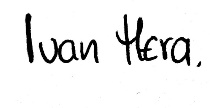 Ivan Hera.